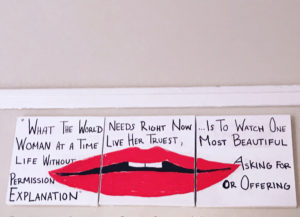 "WHAT THE WORLD NEEDS RIGHT NOW ...IS TO WATCH ONE
WOMAN AT A TIME LIVE HER TRUEST, MOST BEAUTIFUL
LIFE WITHOUT ASKING FOR
PERMISSION OR OFFERING
EXPLANATION"